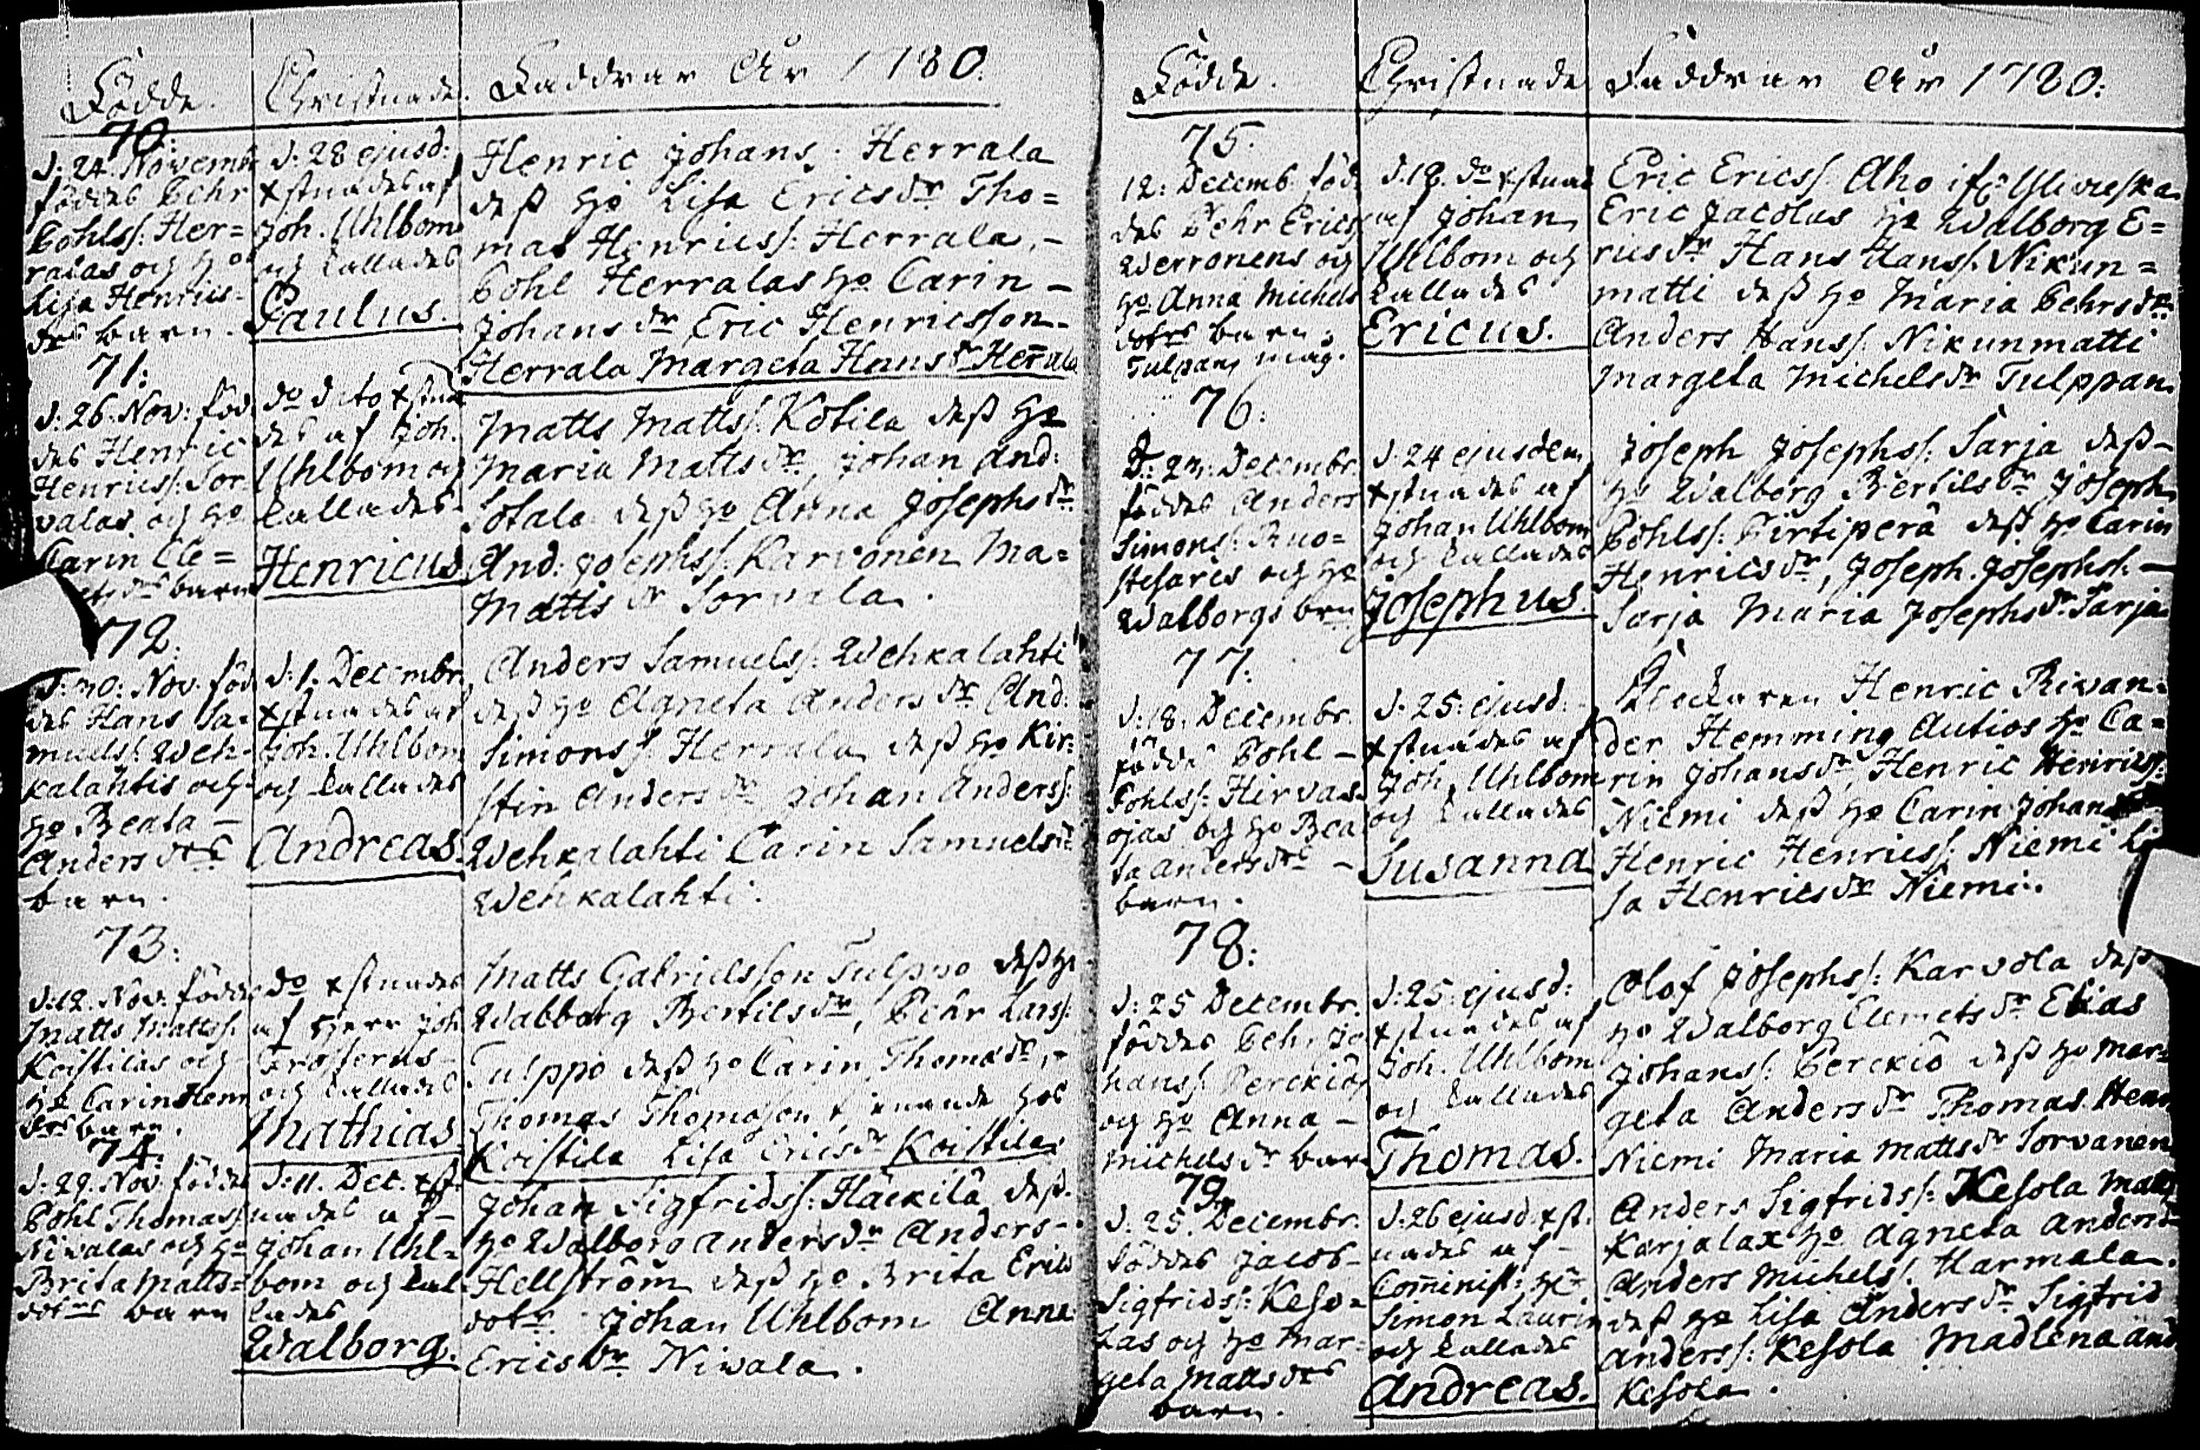 Födde. Christnade. Faddrar År 1780:
70:
d: 24. Novembr
föddes Pehr
Pohlss: Her=
ralas och ho
Lisa Henrics=
drs barn.
d: 28 ejusd:
xstnades af
Joh. Uhlbom
och kallades
Paulus.
Henric Johans: Herrala
dess ho Lisa Ericsdr Tho=
mas Henricss: Herrala, -
Pohl Herralas ho Carin -
Johansdr, Eric Henricsson -
Herrala Margeta Hansdr Herrala
71:
d: 26. Nov: föd
des Henric
Henricss: Sor=
valas och ho
Carin Cle=
drs barn
do dito xstna
des af Joh.
Uhlbom och
kallades
Henricus
Matts Mattss: Kotila dess ho
Maria Mattsdr, Johan And:
Sotala dess ho Anna Josephsdr
And: Josephss: Karvonen Ma=
Mattsdr Sorvala.
72.
d: 30: Nov. föd
des Hans Sa=
muelss: Weh=
kalahtis och
ho Beata -
Andersdrs
barn.
d: 1. Decembr
xstnades af
Joh. Uhlbom
och kallades
Andreas.
Anders Samuelss: Wehkalahti
dess ho Agneta Andersdr And:
Simonss: Herrala dess ho Kir=
stin Andersdr Johan Anderss:
Wehkalahti Carin Samuelsdr
Wehkalahti.
73:
d: 12. Nov. föddes
Matts Mattss:
Koistilas och
ho Carin Henr
drs barn.
do xstnades
af Herr Joh
Frosterus
och kallades
Mathias
Matts Gabrielsson Tulppo dess ho
Walborg Bertilsdr, Pehr Larss:
Tulppo dess ho Carin Thomædr, -
Thomas Thomasson tienande hos
Koistila Lisa Ericsdr Koistila
74:
d: 29. Nov. föddes
Pohl Thomass:
Niwalas och ho
Brita Matts=
dotrs barn
d: 11. Dec. xst=
nades af -
Johan Uhl=
bom och kal
lades
Walborg.
Johan Sigfridss: Häckilä dess
ho Walborg Andersdr Anders -
Hellström dess ho Brita Erics
dotr. Johan Uhlbom Anna
Ericsdr Niwala.
Födde. Christnade Faddrar År 1780:
75.
12: Decemb. föd
des Pehr Ericss
Werronens och
ho Anna Michels
dotrs barn,
Tulpans måg.
d. 12. do xstnad
af Johan
Uhlbom och
kallades
Ericus.
Eric Ericss: Aho ifr: Ylivieska
Eric Jacolas ho Walborg E=
ricsdr Hans Hanss: Nikun=
matti dess ho Maria Pehrsdr
Anders Hanss: Nikunmatti
Margeta Michelsdr Tulppan.
76:
Decembr.
föddes Anders
Simonss: Ruo=
stesaris och ho
Walborgs brn
d: 24 ejusdem
xstnades af
Johan Uhlbom
och kallades
Josephus.
Joseph Josephss: Sarja dess -
ho Walborg Bertilsdr Joseph
Pohlss: Pirtiperä dess ho Carin
Henricsdr, Joseph Josephss: -
Sarja Maria Josephsdr Sarja
77:
d: 18. Decembr.
födde Pohl -
Pohlss: Hirvas=
ojas och ho Bea
ta Andersdrs -
barn.
d: 25: ejusd: -
xstnades af
Joh, Uhlbom
och kallades
Susanna
Klockaren Henric Rivan=
der Hemming Autios ho Ca=
rin Johansdr Henric Henricss:
Niemi dess ho Carin Johans
Henric Henricss: Niemi Li
sa Henricsdr Niemi.
78:
d: 25 Decembr.
föddes Pehr Jo
hanss: Perckiös
och ho Anna -
Michelsdr barn
d: 25: ejusd:
xstnades af
Joh. Uhlbom
och kallades
Thomas.
Olof Josephss: Karvola dess
ho Walborg Clemetsdr Elias
Johanss: Perckiö dess ho Mar=
geta Andersdr Thomas Henr
Niemi Maria Mattsdr Sorvanen
79.
d: 25. Decembr.
föddes Jacob -
Sigfridss: Keso=
las och ho Mar=
geta Mattsdrs
barn.
d: 26 ejusd. xst=
nades af -
Cominist: Hr
Simon Laurin
och kallades
Andreas.
Anders Sigfridss: Kesola Matts
Karjalax ho Agneta Andersdr
Anders Michelss: Harmala.
dess ho Lisa Andersdr Sigfrid
Anderss: Kesola Madlena And
Kesola.